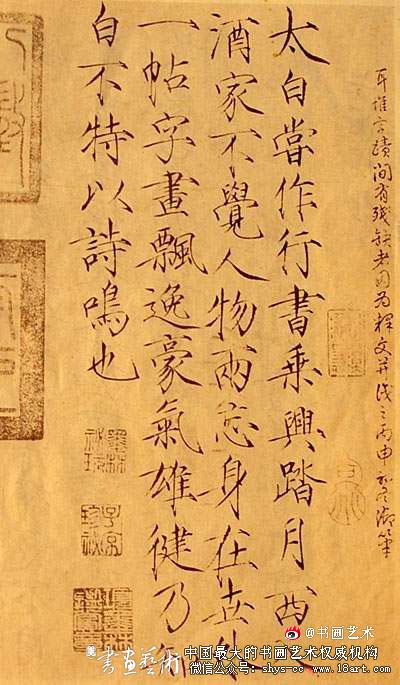 間有殘缺
為釋文并識之丙申
御筆
太白嘗作行書乘興踏月西入
酒家不覺人物兩忘身在世外
一帖字畫飄逸豪氣雄健乃知
白不特以詩鳴也
@书画艺术
書畫藝術
中国最大的书画艺术权威机构
微信公众号：shys-cc www.18art.com